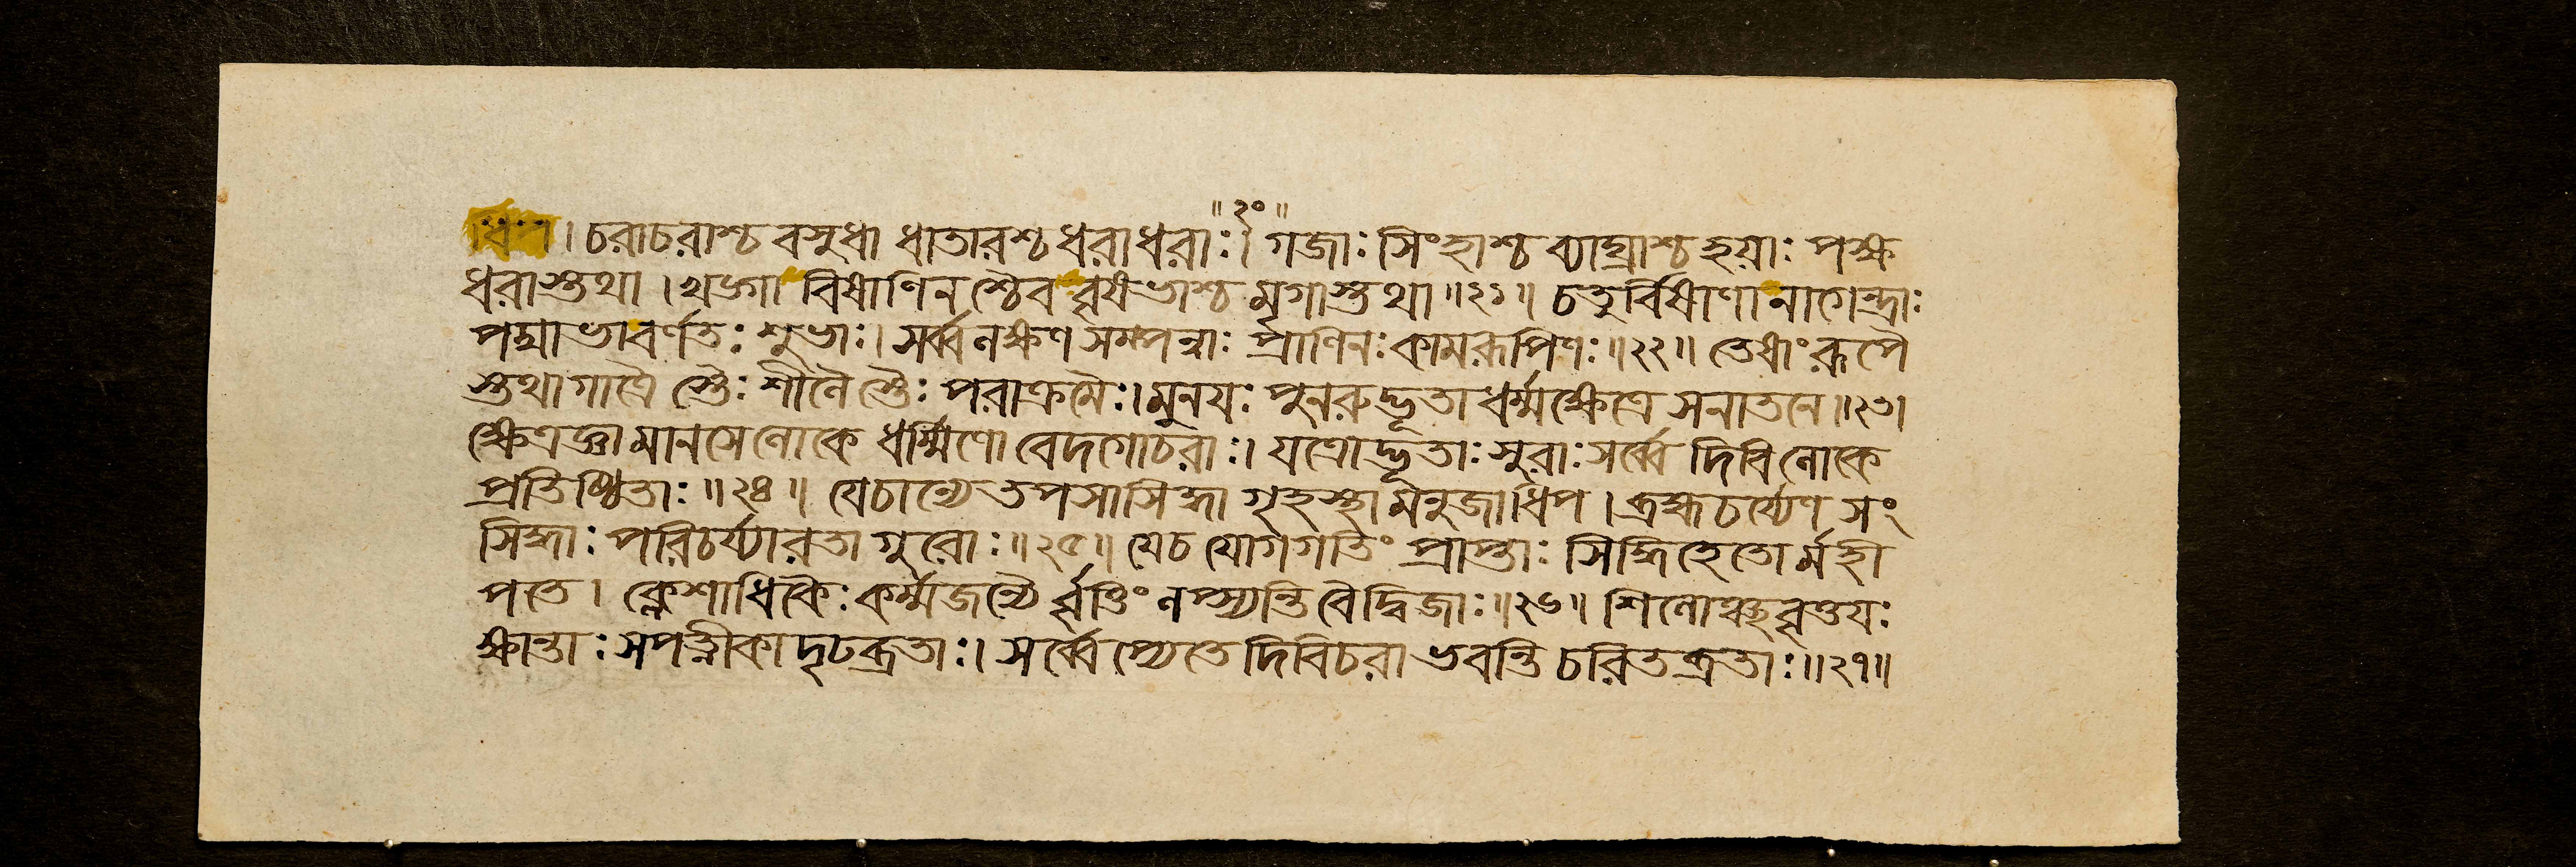 ॥২০॥
ধিপ। চরাচরাশ্চ বসুধা ধাতারশ্চ ধরাধরাঃ। গজাঃ সিংহাশ্চ ব্যাঘ্রাশ্চ হয়াঃ পক্ষ
ধরাস্তথা । খড্গা বিষাণিনশ্চৈব বৃষভাশ্চ মৃগাস্তথা॥২১॥ চতুর্বিষাণা নাগেন্দ্রাঃ
পদ্মাভাবর্ণতঃ শুভাঃ। সর্ব্বলক্ষণ সম্পন্নাঃ প্রাণিনঃ কামরূপিণঃ॥২২॥ তেষাং রূপৈ
স্তথা গাত্রৈ স্তৈঃ শীলৈ স্তৈঃ পরাক্রমৈঃ। মুনয়ঃ পুনরুদ্ভূতা ধর্ম্মক্ষেত্রে সনাতনে॥২৩।
ক্ষেত্রজ্ঞা মানসে লোকে ধর্ম্মিণো বেদগোচরাঃ। যত্রোদ্ভূতাঃ সুরাঃ সর্ব্বে দিবি লোকে
প্রতিষ্ঠিতাঃ॥২৪॥ যে চান্যে তপসা সিদ্ধা গৃহস্থা মনুজাধিপ। ব্রহ্মচর্য্যেণ সং
সিদ্ধাঃ পরিচর্য্যারতা গুরোঃ॥২৫॥ যে চ যোগগতিং প্রাপ্তাঃ সিদ্ধিহেতো র্মহী
পতে। ক্লেশাধিকৈঃ কর্ম্মজন্যৈ র্বৃত্তিং লপ্স্যন্তি বৈ দ্বিজাঃ॥২৬॥ শিলোঞ্ছবৃত্তয়ঃ
ক্ষান্তাঃ সপত্নীকা দৃঢব্রতাঃ। সর্ব্বে প্যেতে দিবিচরা ভবন্তি চরিতব্রতাঃ॥২৭॥